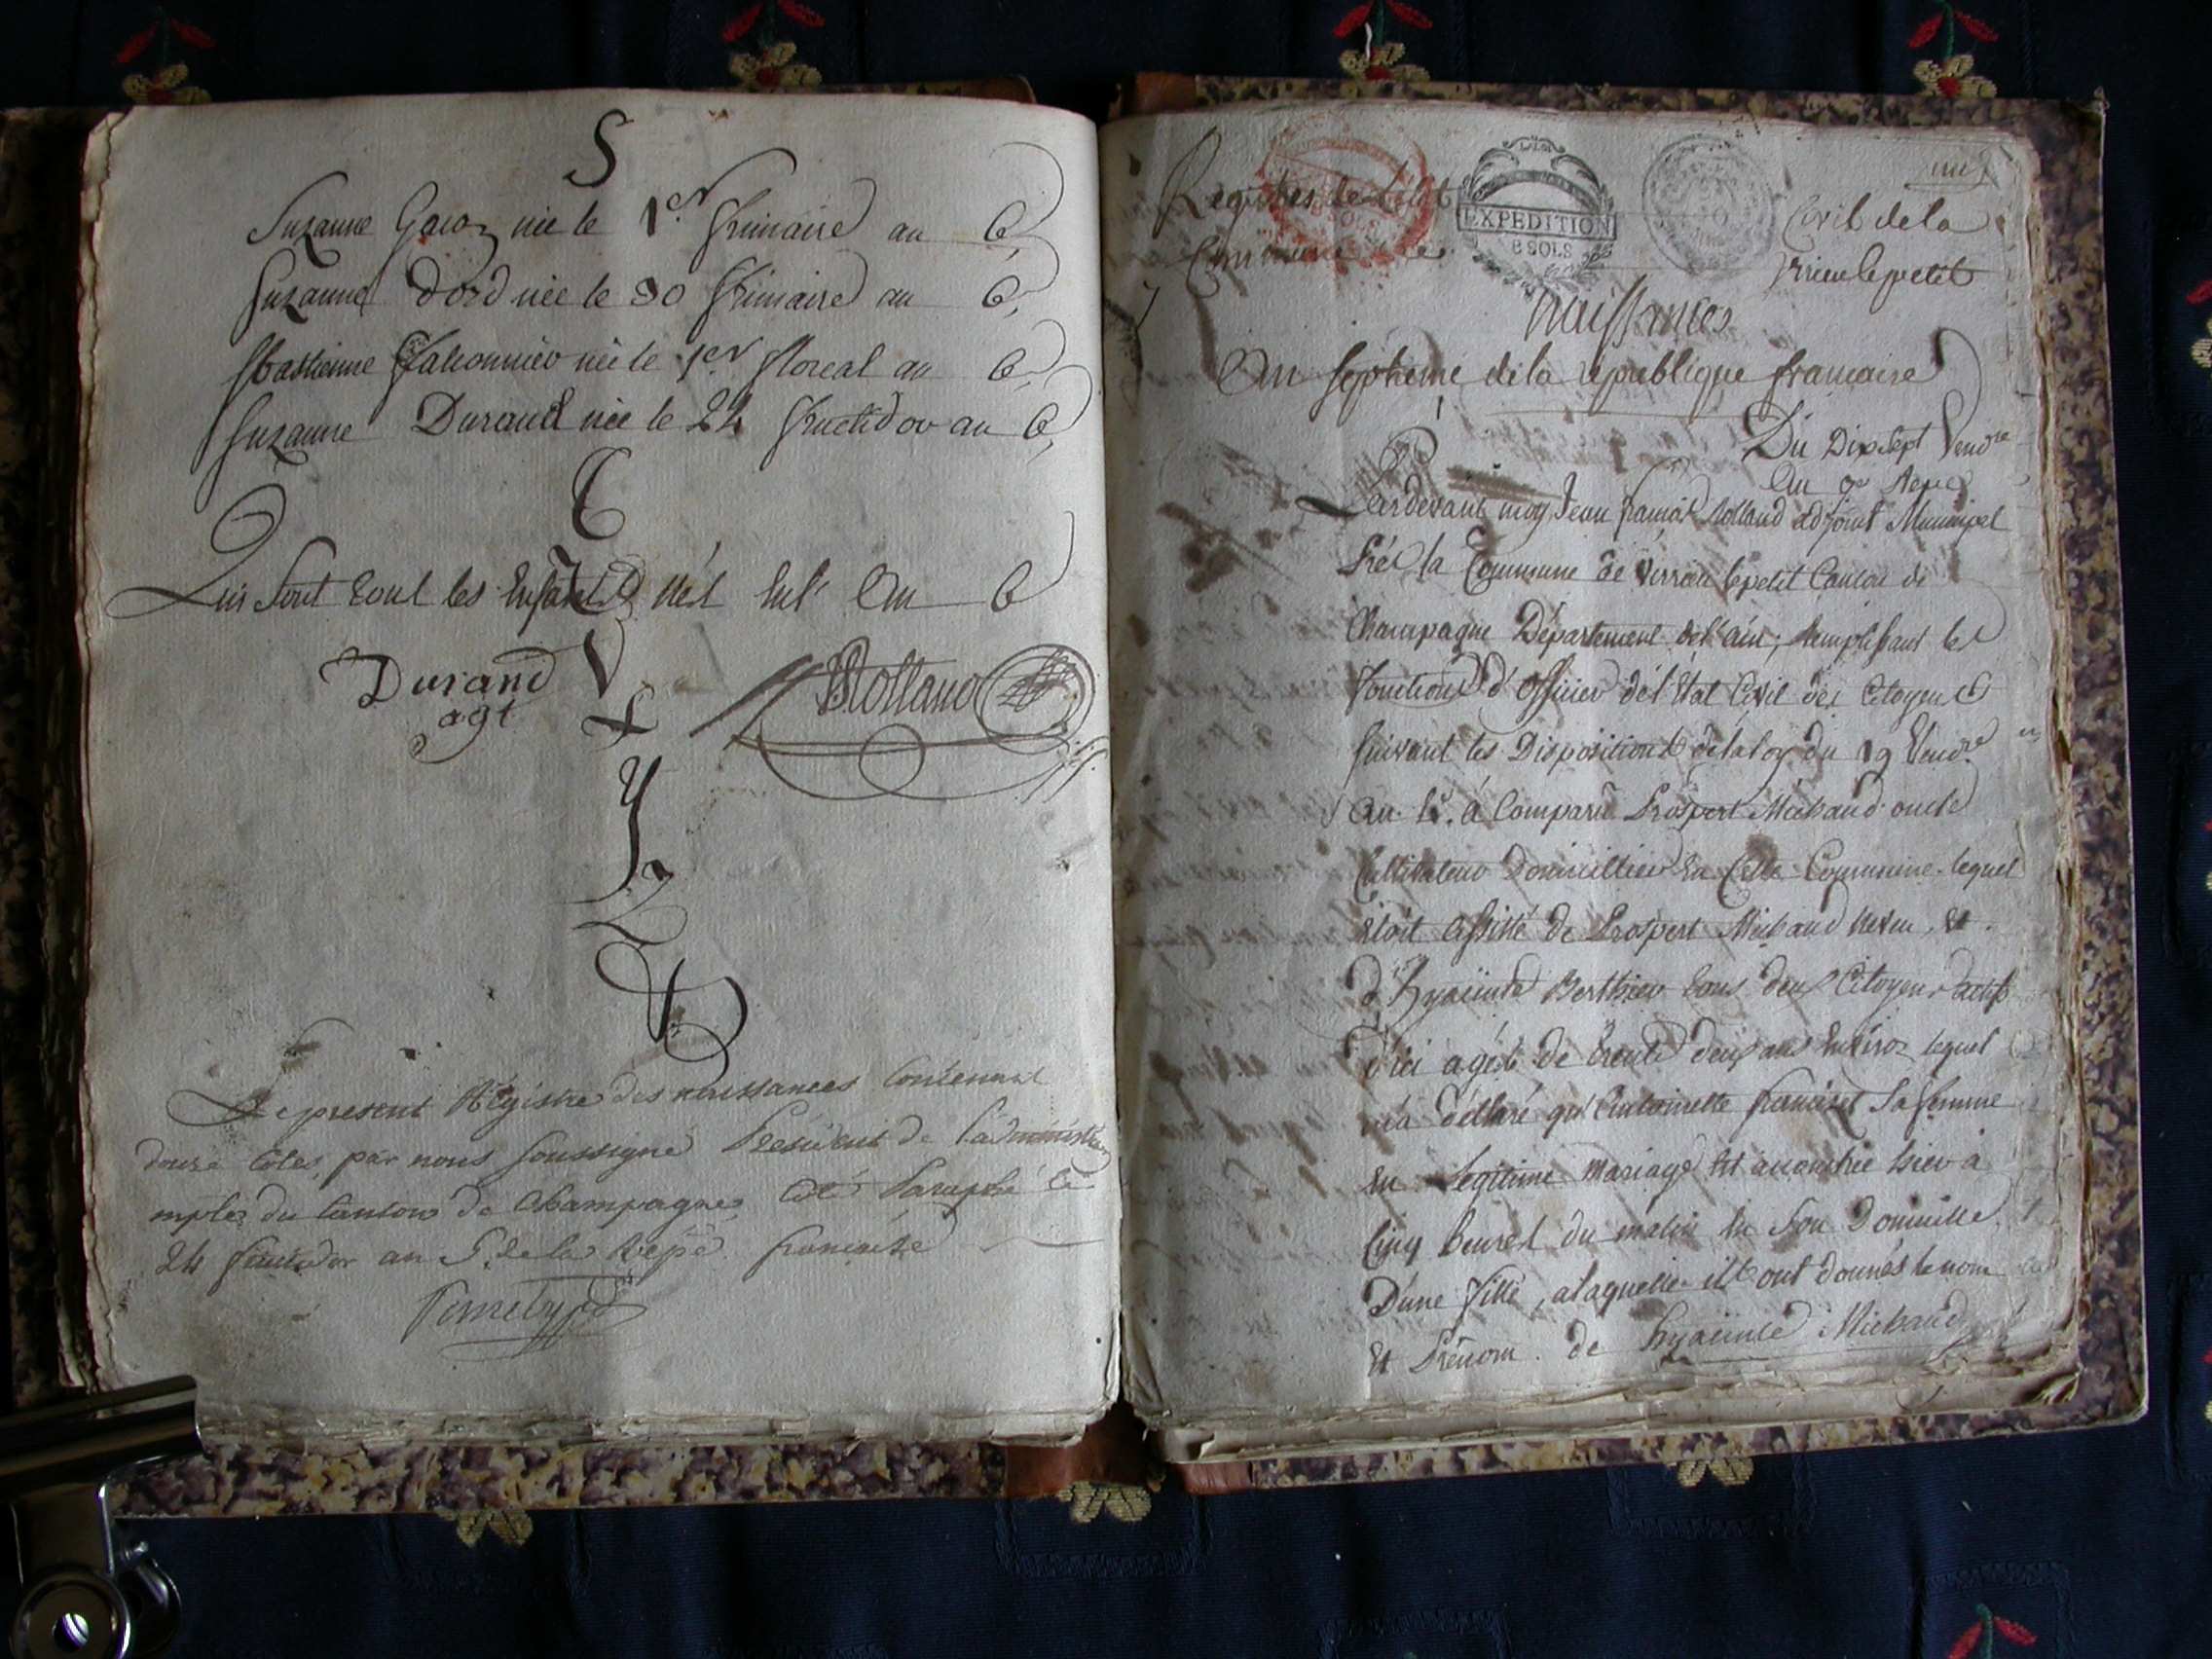 S
Suzanne née le 1er frimaire an 6,
Suzanne d'ord née le 30 frimaire an 6,
née le 1er floreal an 6,
Suzanne Durand née le 24 fructidor an 6,
T
Qui sont tout les Enfants nés En l'An 6
V
Durand
agt
Rolland
X
Y
Z
&
Le present Régistre des naissances Contenant
douze Cotes, par nous soussigné President de l'administ
mple du Canton de Champagne Coté Paraphé le
24 fructidor an 5 de la Repe francaise
un
Régistres de l'état Civil de la
Commune de virieu le petit
EXPEDITION
8 SOLS
Naissances
An septieme de la republique francaise
Du Dix sept Vendre
An 7e Repe
Pardevant moy Jean françois Rolland adjoint Municipal
Préz la Commune de virrieu lepetit Canton de
Champagne Département de l'ain, Remplissant les
fonctions d'officier de l'état Civil des Citoyens
suivant les Dispositions de la loy du 19 Vendre
an 4e. à Comparu Prospert Michaud oncle
Cultivateur Domicillier En Cette Commune lequel
étoit assisté de Prospert Michaud neveu, Et
d'hyacinte Berthier tous deux Citoyens actifs
d'ici agés de trente deux ans Environ lequel
m'a déclaré qu'Antoinette françoise sa femme
En Legitime Mariage Est accouchée hier à
Cinq heures du matin En son Domicille
D'une fille, à laquelle ils ont donnés le nom
Et Prénom de hyacinte Michaud